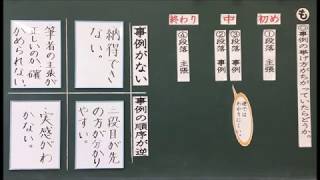 も
◎事例の挙げ方がちがっていたらどうか。
初め
①段落 主張
中
②段落 事例
③段落 事例
終わり
④段落 主張
事例がない
納得できない。
筆者の主張が正しいのか、確かめられない。
事例の順序が逆
三段目が先の方が分かりやすい。
…実感がわかない。